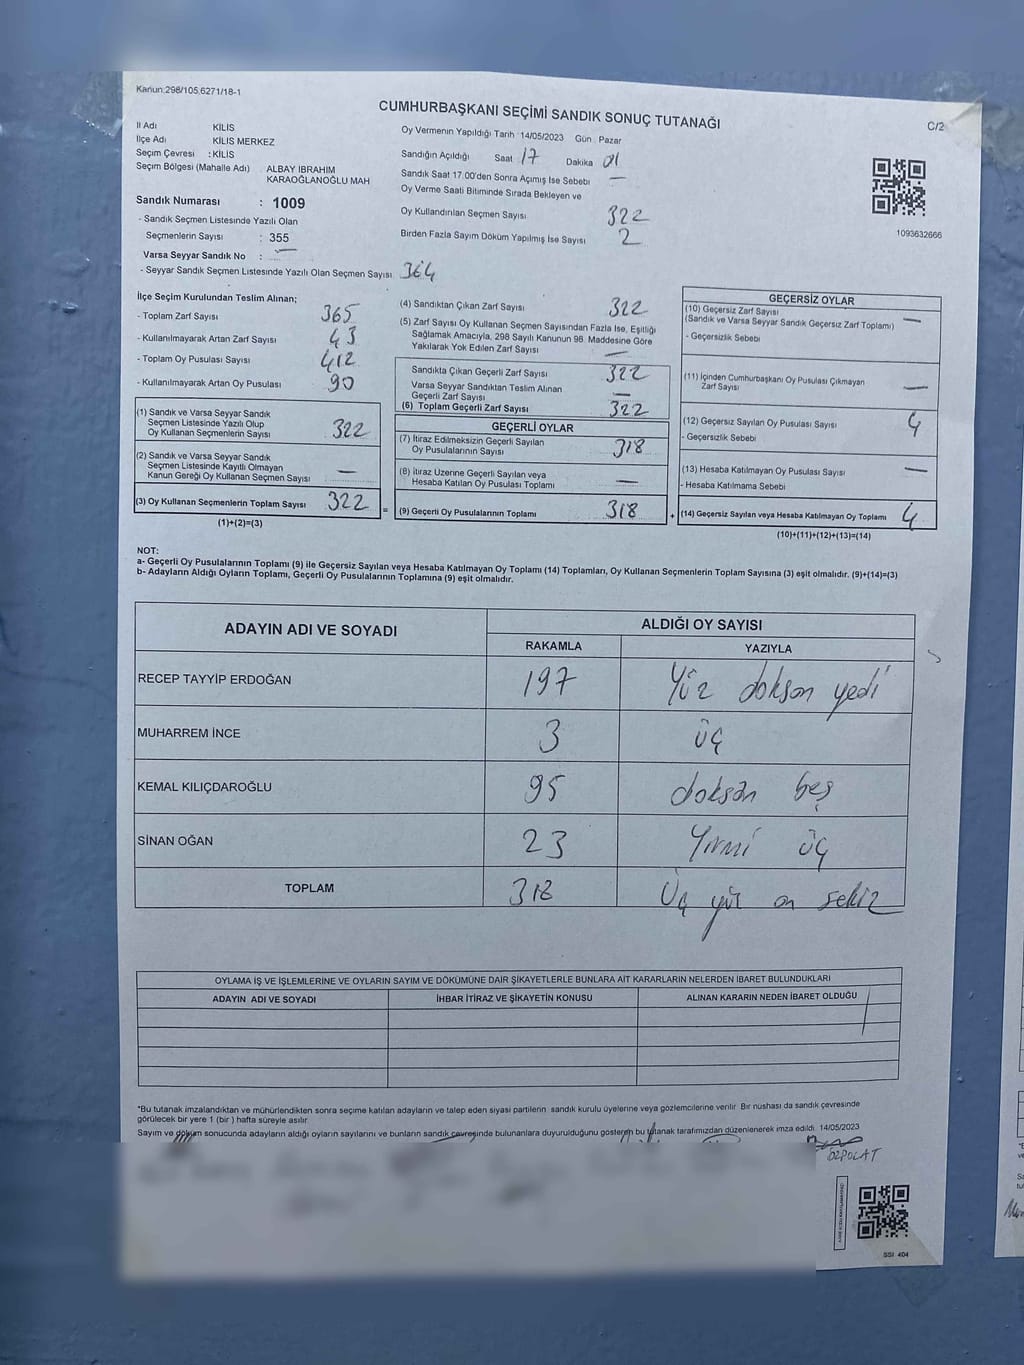 Kanun:298/105,6271/18-1
CUMHURBAŞKANI SEÇİMİ SANDIK SONUÇ TUTANAĞI
C/2
İl Adı KİLİS
İlçe Adı KİLİS MERKEZ
Seçim Çevresi : KİLİS
Seçim Bölgesi (Mahalle Adı) ALBAY İBRAHİM KARAOĞLANOĞLU MAH
Sandık Numarası : 1009
- Sandık Seçmen Listesinde Yazılı Olan
Seçmenlerin Sayısı : 355
Varsa Seyyar Sandık No : —
- Seyyar Sandık Seçmen Listesinde Yazılı Olan Seçmen Sayısı 364
Oy Vermenin Yapıldığı Tarih :14/05/2023 Gün : Pazar
Sandığın Açıldığı Saat 17 Dakika 01
Sandık Saat 17.00'den Sonra Açımış İse Sebebi —
Oy Verme Saati Bitiminde Sırada Bekleyen ve
Oy Kullandırılan Seçmen Sayısı 322
Birden Fazla Sayım Döküm Yapılmış İse Sayısı 2
1093632666
İlçe Seçim Kurulundan Teslim Alınan;
- Toplam Zarf Sayısı 365
- Kullanılmayarak Artan Zarf Sayısı 43
- Toplam Oy Pusulası Sayısı 412
- Kullanılmayarak Artan Oy Pusulası 90
(1) Sandık ve Varsa Seyyar Sandık
Seçmen Listesinde Yazılı Olup
Oy Kullanan Seçmenlerin Sayısı 322
(2) Sandık ve Varsa Seyyar Sandık
Seçmen Listesinde Kayıtlı Olmayan
Kanun Gereği Oy Kullanan Seçmen Sayısı —
(3) Oy Kullanan Seçmenlerin Toplam Sayısı 322 =
(1)+(2)=(3)
(4) Sandıktan Çıkan Zarf Sayısı 322
(5) Zarf Sayısı Oy Kullanan Seçmen Sayısından Fazla İse, Eşitliği
Sağlamak Amacıyla, 298 Sayılı Kanunun 98. Maddesine Göre
Yakılarak Yok Edilen Zarf Sayısı —
Sandıkta Çıkan Geçerli Zarf Sayısı 322
Varsa Seyyar Sandıktan Teslim Alınan
Geçerli Zarf Sayısı —
(6) Toplam Geçerli Zarf Sayısı 322
GEÇERLİ OYLAR
(7) İtiraz Edilmeksizin Geçerli Sayılan
Oy Pusulalarının Sayısı 318
(8) İtiraz Üzerine Geçerli Sayılan veya
Hesaba Katılan Oy Pusulası Toplamı —
(9) Geçerli Oy Pusulalarının Toplamı 318 +
GEÇERSİZ OYLAR
(10) Geçersiz Zarf Sayısı
(Sandık ve Varsa Seyyar Sandık Geçersiz Zarf Toplamı) —
- Geçersizlik Sebebi
(11) İçinden Cumhurbaşkanı Oy Pusulası Çıkmayan
Zarf Sayısı —
(12) Geçersiz Sayılan Oy Pusulası Sayısı 4
- Geçersizlik Sebebi
(13) Hesaba Katılmayan Oy Pusulası Sayısı —
- Hesaba Katılmama Sebebi
(14) Geçersiz Sayılan veya Hesaba Katılmayan Oy Toplamı 4
(10)+(11)+(12)+(13)=(14)
NOT:
a- Geçerli Oy Pusulalarının Toplamı (9) ile Geçersiz Sayılan veya Hesaba Katılmayan Oy Toplamı (14) Toplamları, Oy Kullanan Seçmenlerin Toplam Sayısına (3) eşit olmalıdır. (9)+(14)=(3)
b- Adayların Aldığı Oyların Toplamı, Geçerli Oy Pusulalarının Toplamına (9) eşit olmalıdır.
ADAYIN ADI VE SOYADI ALDIĞI OY SAYISI
RAKAMLA YAZIYLA
RECEP TAYYİP ERDOĞAN 197 Yüz doksan yedi
MUHARREM İNCE 3 üç
KEMAL KILIÇDAROĞLU 95 doksan beş
SİNAN OĞAN 23 Yirmi üç
TOPLAM 318 Üç yüz on sekiz
OYLAMA İŞ VE İŞLEMLERİNE VE OYLARIN SAYIM VE DÖKÜMÜNE DAİR ŞİKAYETLERLE BUNLARA AİT KARARLARIN NELERDEN İBARET BULUNDUKLARI
ADAYIN ADI VE SOYADI İHBAR İTİRAZ VE ŞİKAYETİN KONUSU ALINAN KARARIN NEDEN İBARET OLDUĞU
*Bu tutanak imzalandıktan ve mühürlendikten sonra seçime katılan adayların ve talep eden siyasi partilerin sandık kurulu üyelerine veya gözlemcilerine verilir. Bir nüshası da sandık çevresinde
görülecek bir yere 1 (bir) hafta süreyle asılır
Sayım ve döküm sonucunda adayların aldığı oyların sayılarını ve bunların sandık çevresinde bulunanlara duyurulduğunu gösteren bu tutanak tarafımızdan düzenlenerek imza edildi. 14/05/2023
ÖZPOLAT
SSI 404